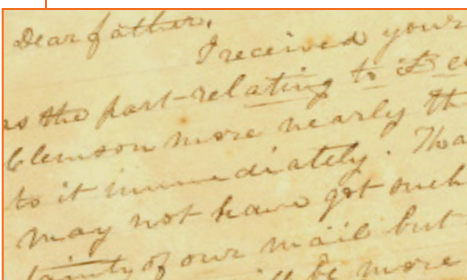 Dear father,
I received your
as the part relating to
Clemson more nearly th
to it immediately. Tha
may not have got such
tainty of our mail but
ll be more